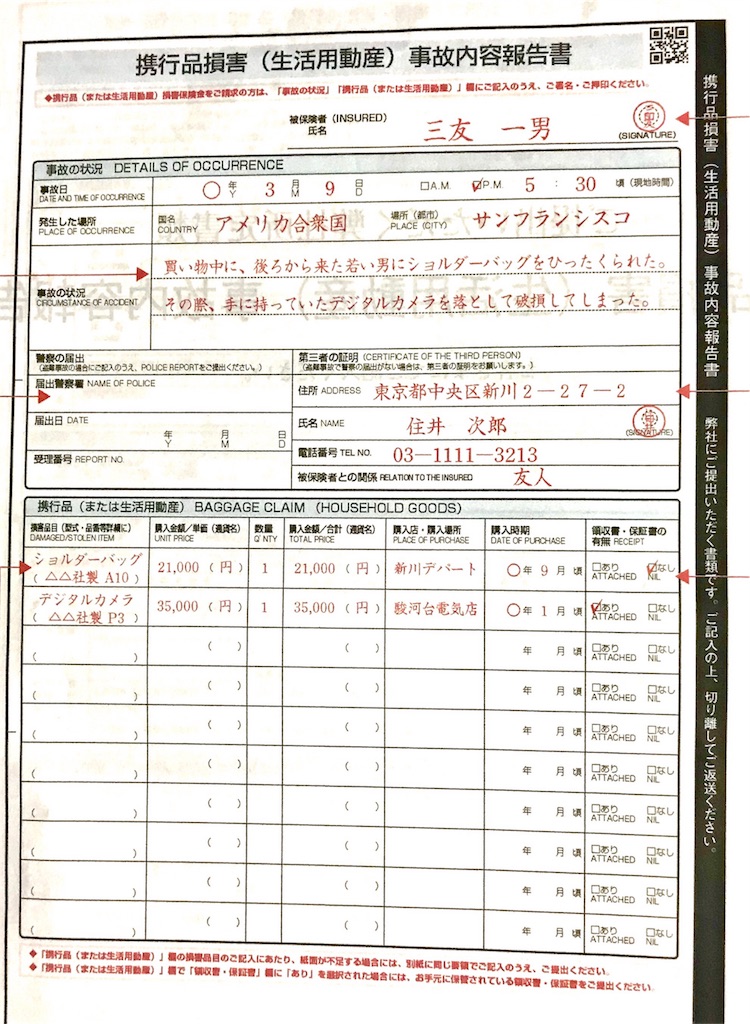 携行品損害（生活用動産）事故内容報告書
◆携行品（または生活用動産）損害保険金をご請求の方は、「事故の状況」「携行品（または生活用動産）」欄にご記入のうえ、ご署名・ご押印ください。
被保険者（INSURED）
氏名
三友 一男
印
(SIGNATURE)
事故の状況 DETAILS OF OCCURRENCE
事故日
DATE AND TIME OF OCCURRENCE
〇 年 Y 3 月 M 9 日 D □A.M. ☑P.M. 5 : 30 頃（現地時間）
発生した場所
PLACE OF OCCURRENCE
国名
COUNTRY
アメリカ合衆国
場所（都市）
PLACE (CITY)
サンフランシスコ
事故の状況
CIRCUMSTANCE OF ACCIDENT
買い物中に、後ろから来た若い男にショルダーバッグをひったくられた。
その際、手に持っていたデジタルカメラを落として破損してしまった。
警察の届出
（盗難事故の場合にご記入のうえ、POLICE REPORTをご提出ください。）
届出警察署 NAME OF POLICE
届出日 DATE
年 月 日
Y M D
受理番号 REPORT NO.
第三者の証明（CERTIFICATE OF THE THIRD PERSON）
（盗難事故で警察の届出がない場合は、第三者の証明をお願いします。）
住所 ADDRESS 東京都中央区新川２－２７－２
氏名 NAME 住井 次郎
(SIGNATURE)
電話番号 TEL NO. 03-1111-3213
被保険者との関係 RELATION TO THE INSURED 友人
携行品（または生活用動産）BAGGAGE CLAIM（HOUSEHOLD GOODS）
損害品目（型式・品番等詳細に）
DAMAGED/STOLEN ITEM
購入金額／単価（通貨名）
UNIT PRICE
数量
Q'NTY
購入金額／合計（通貨名）
TOTAL PRICE
購入店・購入場所
PLACE OF PURCHASE
購入時期
DATE OF PURCHASE
領収書・保証書の
有無 RECEIPT
ショルダーバッグ
（ △△社製 A10 ）
21,000（円） 1 21,000（円） 新川デパート 〇年 9 月 頃 □あり ☑なし
ATTACHED NIL
デジタルカメラ
（ △△社製 P3 ）
35,000（円） 1 35,000（円） 駿河台電気店 〇年 1 月 頃 ☑あり □なし
ATTACHED NIL
（ ） （ ） （ ） 年 月 頃 □あり □なし
ATTACHED NIL
（ ） （ ） （ ） 年 月 頃 □あり □なし
ATTACHED NIL
（ ） （ ） （ ） 年 月 頃 □あり □なし
ATTACHED NIL
（ ） （ ） （ ） 年 月 頃 □あり □なし
ATTACHED NIL
（ ） （ ） （ ） 年 月 頃 □あり □なし
ATTACHED NIL
（ ） （ ） （ ） 年 月 頃 □あり □なし
ATTACHED NIL
（ ） （ ） （ ） 年 月 頃 □あり □なし
ATTACHED NIL
（ ） （ ） （ ） 年 月 頃 □あり □なし
ATTACHED NIL
◆「携行品（または生活用動産）」欄の損害品目のご記入にあたり、紙面が不足する場合には、別紙に同じ要領でご記入のうえ、ご提出ください。
◆「携行品（または生活用動産）」欄で「領収書・保証書」欄に「あり」を選択された場合には、お手元に保管されている領収書・保証書をご提出ください。
携行品損害（生活用動産）事故内容報告書
弊社にご提出いただく書類です。ご記入の上、切り離してご返送ください。